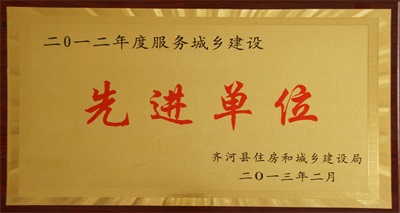 二〇一二年度服务城乡建设
先进单位
齐河县住房和城乡建设局
二〇一三年二月